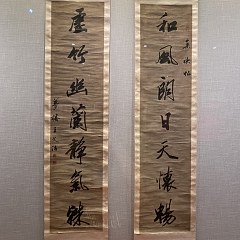 和風朗日天懷暢
虛竹幽蘭靜氣餘